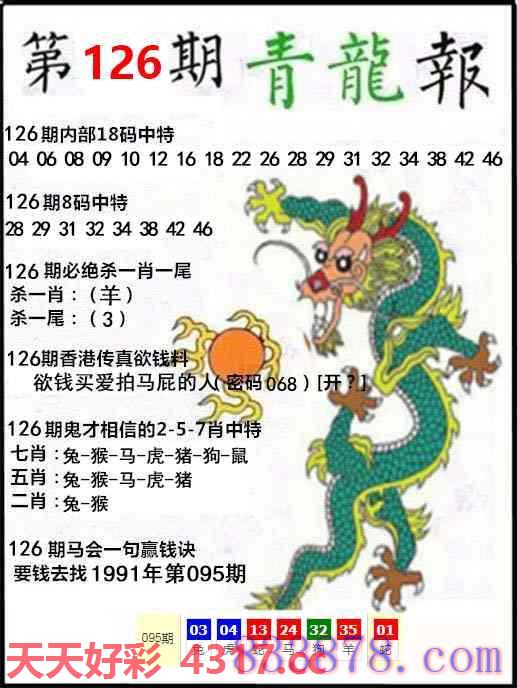 第126期青龍報
126期内部18码中特
04 06 08 09 10 12 16 18 22 26 28 29 31 32 34 38 42 46
126期8码中特
28 29 31 32 34 38 42 46
126期必绝杀一肖一尾
杀一肖：（羊）
杀一尾：（3）
126期香港传真欲钱料
欲钱买爱拍马屁的人（密码068）[开？]
126期鬼才相信的2-5-7肖中特
七肖：兔-猴-马-虎-猪-狗-鼠
五肖：兔-猴-马-虎-猪
二肖：兔-猴
126期马会一句赢钱诀
要钱去找1991年第095期
095期 03 04 13 24 32 35 01
兔 虎 蛇 马 狗 羊 蛇
天天好彩 4317.cc